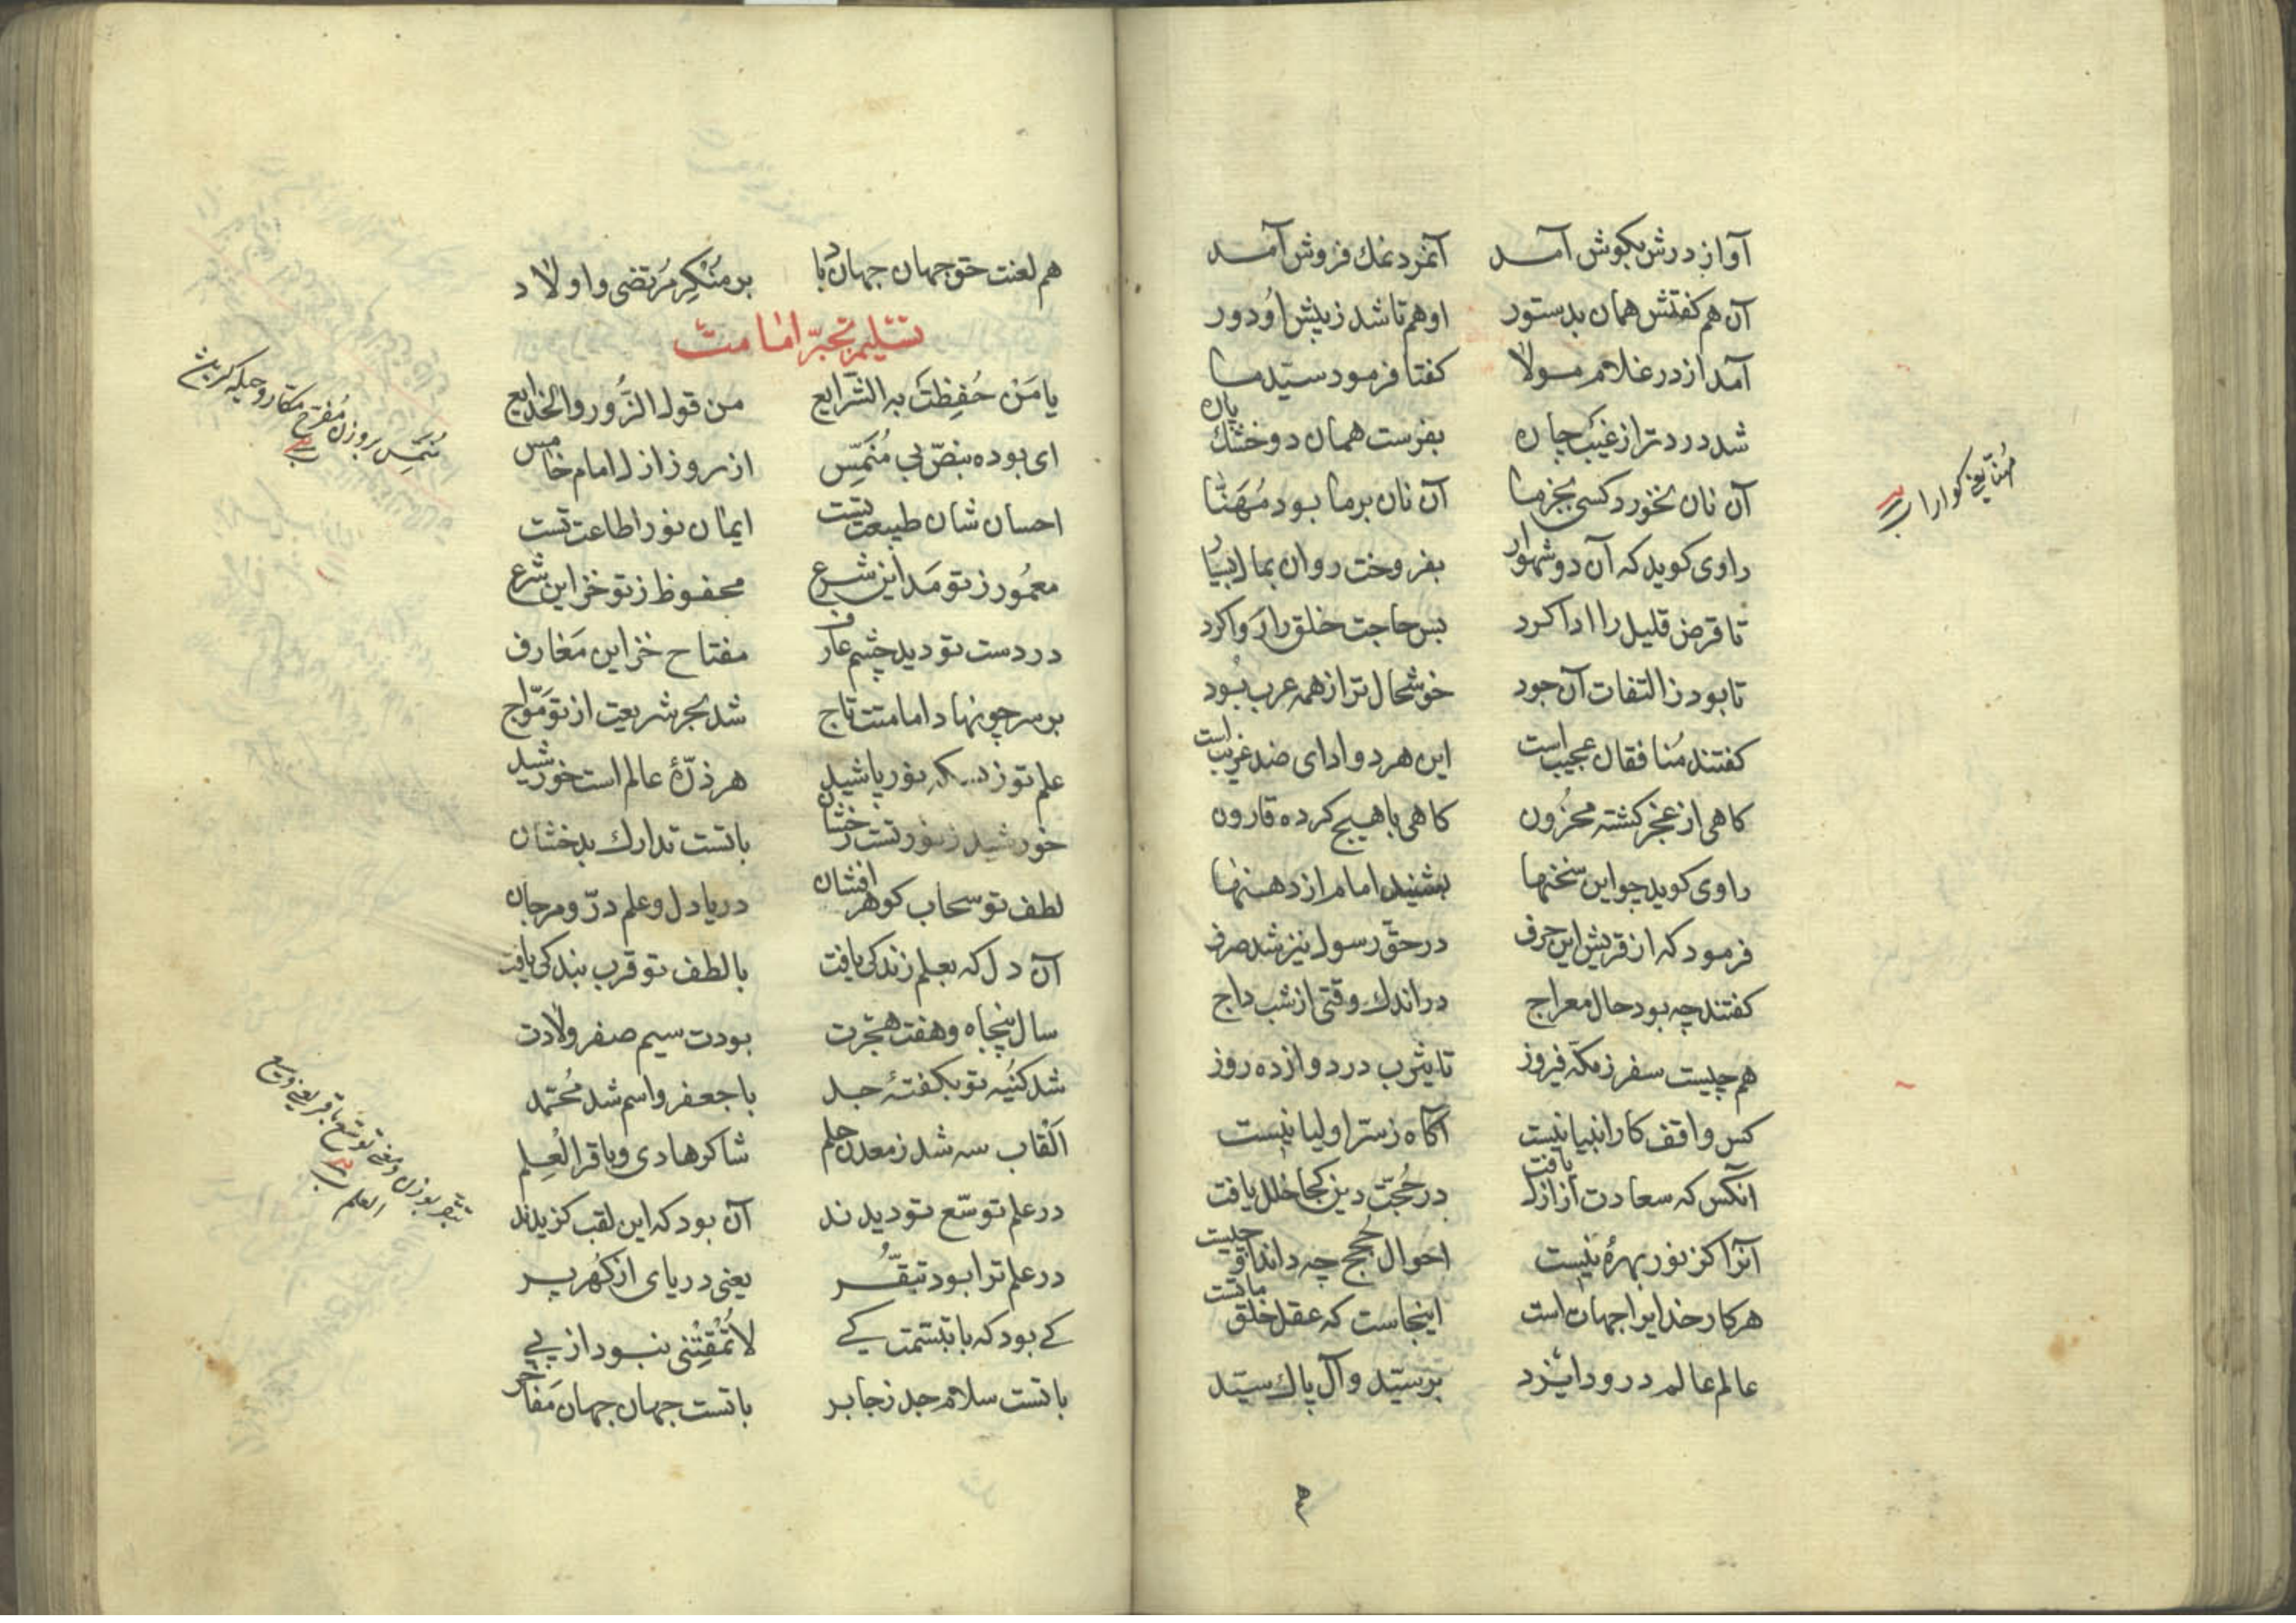 آواز درش بکوش آمد آنمرد نمك فروش آمد
آن هم کفتش همان بدستور او هم تا شد ز پیش او دور
آمد از در غلام مولا کفتا فرمود سیّد ما
شد درد تر از غیب جان بفرست همان دو خشك نان
آن نان نخورد کسی بجز ما آن نان بر ما بود مُهَنّا
مُهنّا یعنی کوارا
راوی کوید که آن دو شهوار بفروخت روان بمال بسیار
تا قرض قلیل را ادا کرد بس حاجت خلق را روا کرد
تا بود ز التفات آن جود خوشحال تر از همه عرب بُود
کفتند مُنافقان عجیب است این هر دو ادای ضد غریب است
کاهی از عجز کشته محزُون کاهی با هیچ کرده قارون
راوی کوید چو این سخنها بشنید امام از دهنها
فرمود که از قریش این حرف در حقّ رسول نیز شد صرف
کفتند چه بود حال معراج در اندك وقتی از شب داج
هم چیست سفر ز مکّه فیروز تا یثرب در دوازده روز
کس واقف کار انبیا نیست آکاه ز سرّ اولیا نیست
آنکس که سعادت از ازل یافت در حُجّت دین کجا خلل یافت
آنرا کز نور بهرهٔ نیست احوال حُجج چه داند او چیست
هر کار خدایرا جهات است اینجاست که عقل خلق مات است
عالم عالم درود ایزد بر سیّد و آل پاك سیّد
هم لعنت حق جهان جهان باد بر مُنْکِر مُرتضی و اولاد
تسلیم بحرّ امامت
یا مَنْ حُفِظَتْ به الشّرایع من قول الزُّور والخدایع
ای بوده بنصّ بی مُنَمِّس از روز ازل امام خامس
مُنَمِّس بر وزن مُفرّح مکّار و حیله کر
احسان شان طبیعت تست ایمان نور اطاعت تست
معمُور ز تو مَداین شرع محفوظ ز تو خزاین شرع
در دست تو دید چشم عارف مفتاح خزاین مَعارف
بر سر چو نهاد امامتت تاج شد بحر شریعت از تو مَوّاج
علم تو ز بسکه نور پاشید هر ذرّهٔ عالم است خورشید
خورشید ز نور تست رخشان با تست تدارك بدخشان
لطف تو سحاب کوهر افشان دریا دل و علم درّ و مرجان
آن دل که بعلم زندکی یافت با لطف تو قرب بندکی یافت
سال پنجاه و هفت هجرت بودت سیم صفر ولادت
شد کنیه تو بکفتهٔ جد با جعفر و اسم شد مُحمّد
اَلْقاب سه شد ز معدن حلم شاکر هادی و باقر العِلم
در علم توسّع تو دیدند آن بود که این لقب کزیدند
تبقّر بوزن و معنی توسّع باقر یعنی وسیع العلم
در علم ترا بود تبقّر یعنی دریای از کُهر پر
کے بود که با تبسّمت کے لاتُمْقِتْنی نبود از پے
با تست سلام جد ز جابر با تست جهان جهان مَفاخر